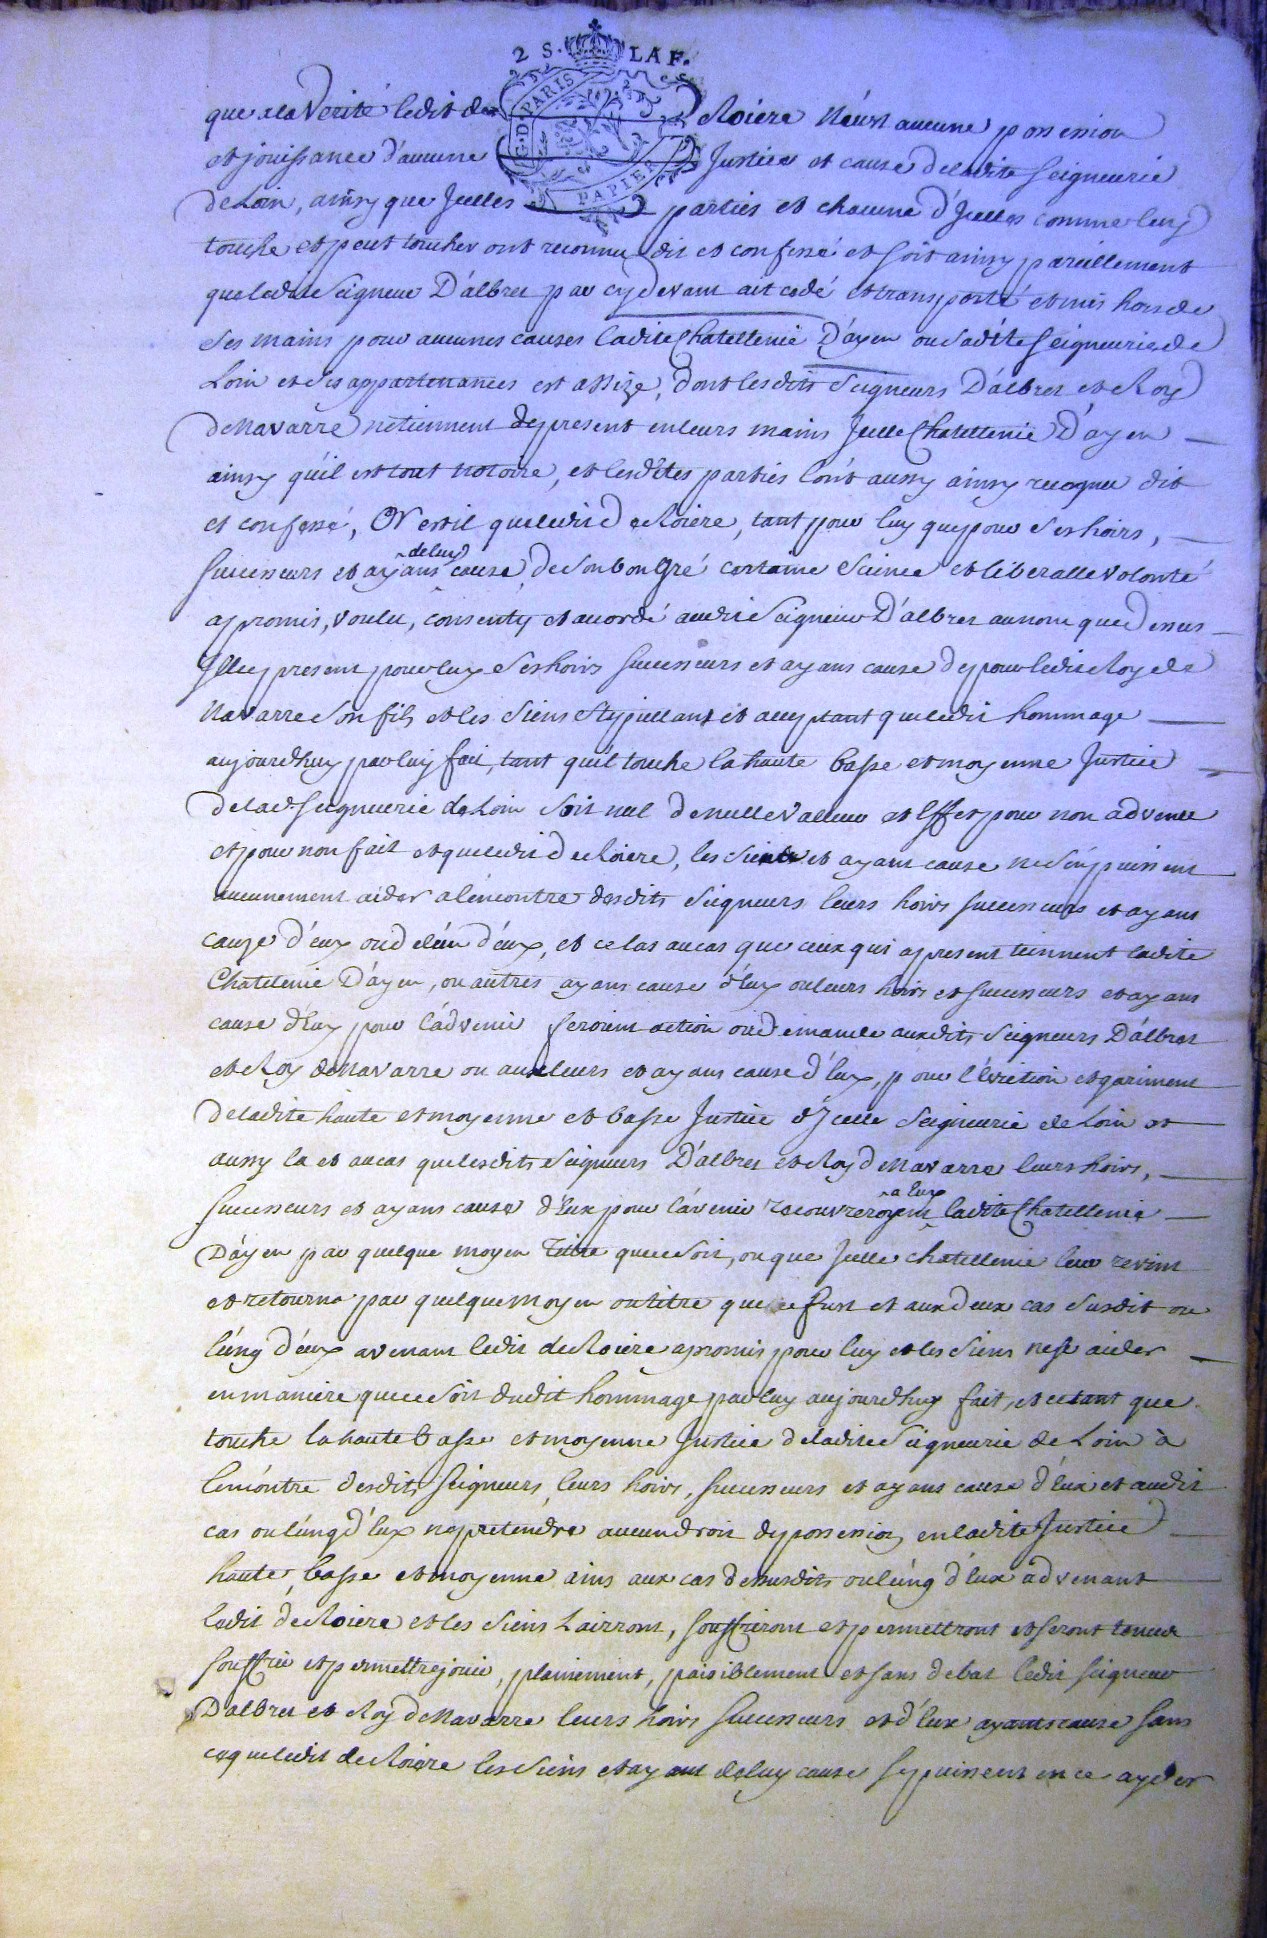 2 S. LA F.
G. D. PARIS
PAPIER
que a la Verité ledit de Roiere N'éust aucune possession
et jouissance d'aucune Justice et cause deladite Seigneurie
de Loin, ainsy que Jcelles parties et chacune d'Jcelles comme leur
touche et peut toucher ont reconnu dit et confessé et soit ainsy pareillement
que ledit Seigneur D'albret par cy devant ait cedé et transporté et mis hors de
Ses mains pour aucunes causes ladite Chatellenie D'ayen ou ladite Seigneurie de
Loin et ses appartenances est assize, dont lesdits Seigneurs D'albret et Roy
de Navarre ne tiennent de present en leurs mains Jcelle Chatellenie D'ayen
ainsy qu'il est tout notoire, et lesdites parties l'ont aussy ainsy recognu dit
et confessé, Or est il que ledit de Roiere, tant pour luy que pour Ses hoirs,
Successeurs et ayans de luy cause, de Son bon Gré certaine Science et liberalle volonté
a promis, voulu, consenty et accordé audit Seigneur D'albret au nom que dessus
Jlley present pour luy Ses hoirs Successeurs et ayans cause de pour ledit Roy de
Navarre Son fils et les Siens Stipullant et acceptant que ledit hommage
aujourdhuy par luy fait, tant qu'il touche la haute basse et moyenne Justice
de lad. Seigneurie de Loin Soit nul de nulle Valleur et Effet pour non advenu
et pour non fait et que ledit de Roiere, les Siens et ayans cause ne S'en puissent
aucunement aider a l'encontre desdits Seigneurs leurs hoirs Successeurs et ayans
cauze d'eux ou de l'un d'eux, et ce las au cas que ceux qui a present tiennent ladite
Chatelenie D'ayen, ou autres ayans cause d'Eux ou leurs hoirs et Successeurs et ayans
cause d'Eux pour l'advenir feroient action ou demande auxdits Seigneurs D'albret
et Roy de Navarre ou aux leurs et ayans cause d'Eux, pour l'éviction et gariment
de ladite haute et moyenne et basse Justice d'Jcelle Seigneurie de Loin et
aussy la et au cas que lesdits Seigneurs D'albret et Roy de Navarre leurs hoirs,
Successeurs et ayans cause d'Eux pour l'avenir recouvreroyent a Eux ladite Chatellenie
D'ayen par quelque moyen titre que ce Soit, ou que Jcelle chatellenie leur revint
et retourna par quelque moyen ou titre que ce fust et aux deux cas Susdit ou
l'ung d'eux avenant ledit de Roiere a promis pour luy et les Siens ne se aider
en maniere que ce Soit dudit hommage par luy aujourdhuy fait, et en tant que
touche la haute basse et moyenne Justice de ladite Seigneurie de Loin à
lencontre desdits Seigneurs, leurs hoirs, Successeurs et ayans cause d'Eux et audit
cas ou l'ung d'Eux ne pretendre aucun droit de possession en ladite Justice
haute, basse et moyenne ains aux cas dessusdits ou l'ung d'Eux advenant
ledit de Roiere et les Siens Lairront, souffriront et permettront et seront tenus
souffrir et permettre jouir, plainement, paisiblement et sans debat ledit Seigneur
D'albret et Roy de Navarre leurs hoirs Successeurs et d'Eux ayants cause sans
ce que ledit de Roiere les Siens et ayant de luy cause se puissent en ce ayder